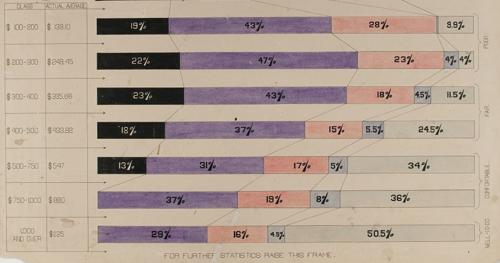 CLASS ACTUAL AVERAGE
$ 100-200 $ 139.10 19% 43% 28% 9.9%
$ 200-300 $ 249.45 22% 47% 23% 4% 4%
POOR
$ 300-400 $ 335.66 23% 43% 18% 4.5% 11.5%
$ 400-500 $ 433.82 18% 37% 15% 5.5% 24.5%
FAIR
$ 500-750 $ 547 13% 31% 17% 5% 34%
$ 750-1000 $ 880 37% 19% 8% 36%
COMFORTABLE
1,000 AND OVER 29% 16% 4.5% 50.5%
WELL-TO-DO
FOR FURTHER STATISTICS RAISE THIS FRAME.